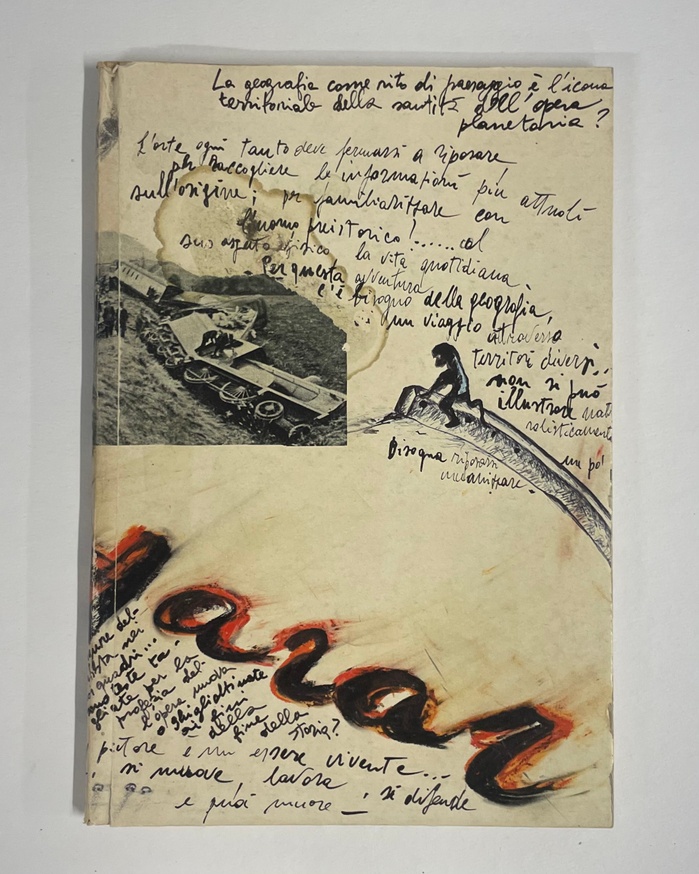 La geografia come rito di paesaggio è l'icona
territoriale della santità dell'opera
planetaria?
L'arte ogni tanto deve fermarsi a riposare
per raccogliere le informazioni più attuali
sull'origine; per familiarizzare con
l'uomo preistorico!......col
suo aspetto fisico la vita quotidiana.
Per questa avventura
c'è bisogno della geografia,
... un viaggio attraverso
territori diversi,
non si può
illustrare nat
ralisticamente
un po'
Bisogna riposarsi
umanizzare.
del-
nei
quadri...
teste ta-
gliate per la
profezia del-
l'opera nuova
o ghigliottinate
ai fini
della
fine della
storia?
pittore e un essere vivente...
si muove lavora
e può muore — si difende